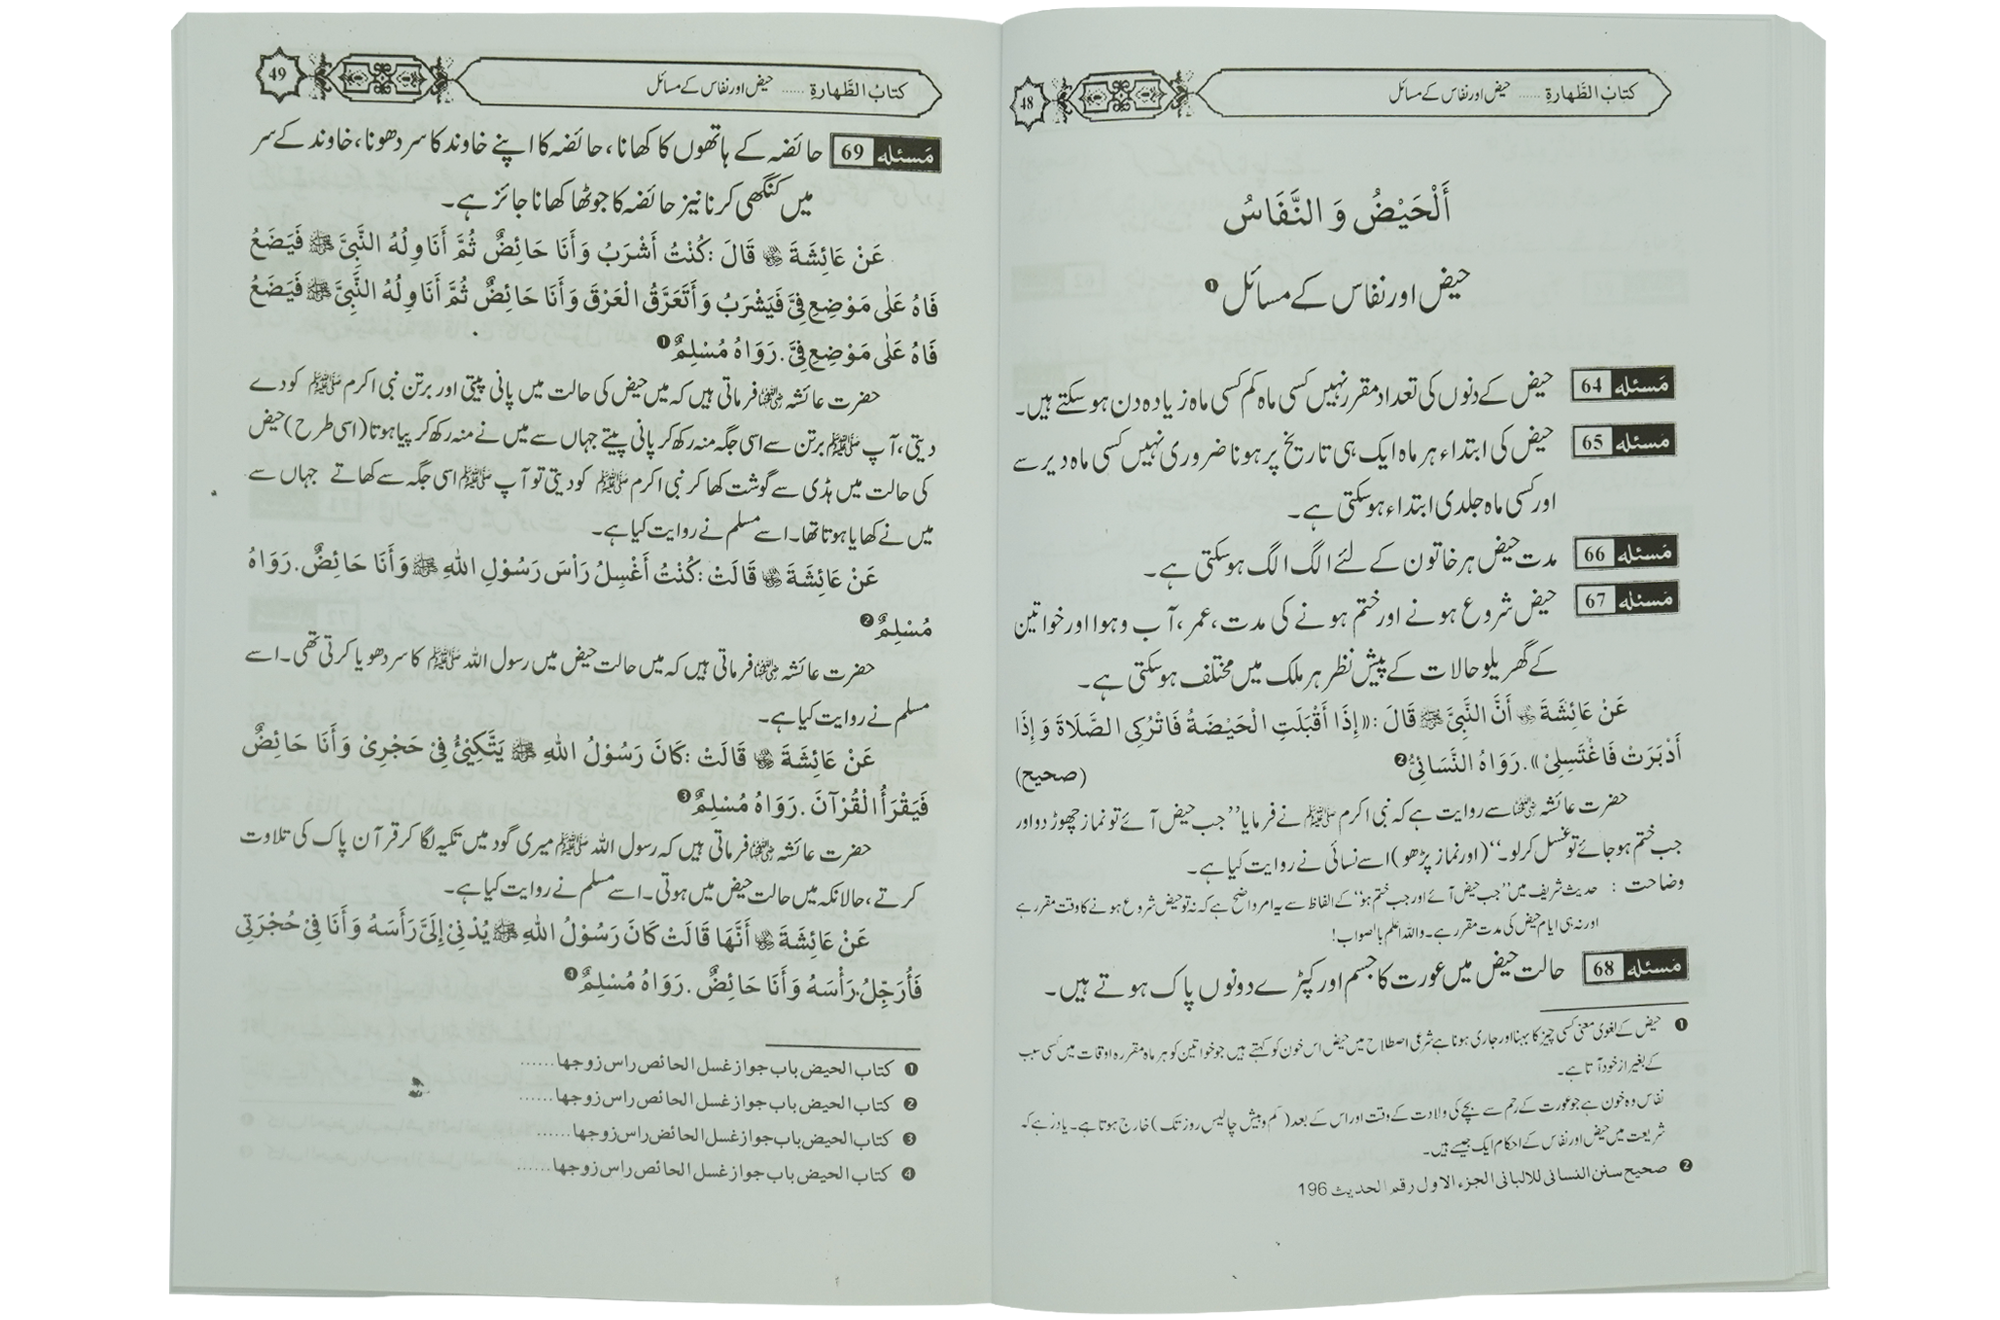 کتابُ الطَّهارةِ ...... حیض اور نفاس کے مسائل
48
أَلْحَيْضُ وَ النَّفَاسُ
حیض اور نفاس کے مسائل ❶
مَسئله 64 حیض کے دنوں کی تعداد مقرر نہیں کسی ماہ کم کسی ماہ زیادہ دن ہو سکتے ہیں۔
مَسئله 65 حیض کی ابتداء ہر ماہ ایک ہی تاریخ پر ہونا ضروری نہیں کسی ماہ دیر سے
اور کسی ماہ جلدی ابتداء ہو سکتی ہے۔
مَسئله 66 مدت حیض ہر خاتون کے لئے الگ الگ ہو سکتی ہے۔
مَسئله 67 حیض شروع ہونے اور ختم ہونے کی مدت، عمر، آب و ہوا اور خواتین
کے گھریلو حالات کے پیش نظر ہر ملک میں مختلف ہو سکتی ہے۔
عَنْ عَائِشَةَ رضی اللہ عنہا أَنَّ النَّبِيَّ ﷺ قَالَ : ((إِذَا أَقْبَلَتِ الْحَيْضَةُ فَاتْرُكِى الصَّلَاةَ وَ إِذَا
أَدْبَرَتْ فَاغْتَسِلِىْ)). رَوَاهُ النَّسَائِىُّ ❷ (صحيح)
حضرت عائشہ رضی اللہ عنہا سے روایت ہے کہ نبی اکرم ﷺ نے فرمایا ’’جب حیض آئے تو نماز چھوڑ دو اور
جب ختم ہو جائے تو غسل کر لو۔‘‘ (اور نماز پڑھو) اسے نسائی نے روایت کیا ہے۔
وضاحت : حدیث شریف میں ’’جب حیض آئے اور جب ختم ہو‘‘ کے الفاظ سے یہ امر واضح ہے کہ نہ تو حیض شروع ہونے کا وقت مقرر ہے
اور نہ ہی ایام حیض کی مدت مقرر ہے۔ واللہ اعلم بالصواب!
مَسئله 68 حالت حیض میں عورت کا جسم اور کپڑے دونوں پاک ہوتے ہیں۔
❶ حیض کے لغوی معنی کسی چیز کا بہنا اور جاری ہونا ہے شرعی اصطلاح میں حیض اس خون کو کہتے ہیں جو خواتین کو ہر ماہ مقررہ اوقات میں کسی سبب
کے بغیر از خود آتا ہے۔
نفاس وہ خون ہے جو عورت کے رحم سے بچے کی ولادت کے وقت اور اس کے بعد (کم و بیش چالیس روز تک) خارج ہوتا ہے۔ یاد رہے کہ
شریعت میں حیض اور نفاس کے احکام ایک جیسے ہیں۔
❷ صحیح سنن النسائی للالبانی الجزء الاول رقم الحدیث 196
کتابُ الطَّهارةِ ...... حیض اور نفاس کے مسائل
49
مَسئله 69 حائضہ کے ہاتھوں کا کھانا، حائضہ کا اپنے خاوند کا سر دھونا، خاوند کے سر
میں کنگھی کرنا نیز حائضہ کا جوٹھا کھانا جائز ہے۔
عَنْ عَائِشَةَ رضی اللہ عنہا قَالَ : كُنْتُ أَشْرَبُ وَأَنَا حَائِضٌ ثُمَّ أُنَاوِلُهُ النَّبِيَّ ﷺ فَيَضَعُ
فَاهُ عَلٰى مَوْضِعِ فِىَّ فَيَشْرَبُ وَأَتَعَرَّقُ الْعَرْقَ وَأَنَا حَائِضٌ ثُمَّ أُنَاوِلُهُ النَّبِيَّ ﷺ فَيَضَعُ
فَاهُ عَلٰى مَوْضِعِ فِىَّ . رَوَاهُ مُسْلِمٌ ❶
حضرت عائشہ رضی اللہ عنہا فرماتی ہیں کہ میں حیض کی حالت میں پانی پیتی اور برتن نبی اکرم ﷺ کو دے
دیتی، آپ ﷺ برتن سے اسی جگہ منہ رکھ کر پانی پیتے جہاں سے میں نے منہ رکھ کر پیا ہوتا (اسی طرح) حیض
کی حالت میں ہڈی سے گوشت کھا کر نبی اکرم ﷺ کو دیتی تو آپ ﷺ اسی جگہ سے کھاتے جہاں سے
میں نے کھایا ہوتا تھا۔ اسے مسلم نے روایت کیا ہے۔
عَنْ عَائِشَةَ رضی اللہ عنہا قَالَتْ : كُنْتُ أَغْسِلُ رَأْسَ رَسُوْلِ اللّٰهِ ﷺ وَأَنَا حَائِضٌ . رَوَاهُ
مُسْلِمٌ ❷
حضرت عائشہ رضی اللہ عنہا فرماتی ہیں کہ میں حالت حیض میں رسول اللہ ﷺ کا سر دھویا کرتی تھی۔ اسے
مسلم نے روایت کیا ہے۔
عَنْ عَائِشَةَ رضی اللہ عنہا قَالَتْ : كَانَ رَسُوْلُ اللّٰهِ ﷺ يَتَّكِئُ فِىْ حَجْرِىْ وَأَنَا حَائِضٌ
فَيَقْرَأُ الْقُرْآنَ . رَوَاهُ مُسْلِمٌ ❸
حضرت عائشہ رضی اللہ عنہا فرماتی ہیں کہ رسول اللہ ﷺ میری گود میں تکیہ لگا کر قرآن پاک کی تلاوت
کرتے، حالانکہ میں حالت حیض میں ہوتی۔ اسے مسلم نے روایت کیا ہے۔
عَنْ عَائِشَةَ رضی اللہ عنہا أَنَّهَا قَالَتْ كَانَ رَسُوْلُ اللّٰهِ ﷺ يُدْنِىْ إِلَىَّ رَأْسَهُ وَأَنَا فِىْ حُجْرَتِى
فَأُرَجِّلُ رَأْسَهُ وَأَنَا حَائِضٌ . رَوَاهُ مُسْلِمٌ ❹
❶ کتاب الحیض باب جواز غسل الحائض راس زوجها ......
❷ کتاب الحیض باب جواز غسل الحائض راس زوجها ......
❸ کتاب الحیض باب جواز غسل الحائض راس زوجها ......
❹ کتاب الحیض باب جواز غسل الحائض راس زوجها ......